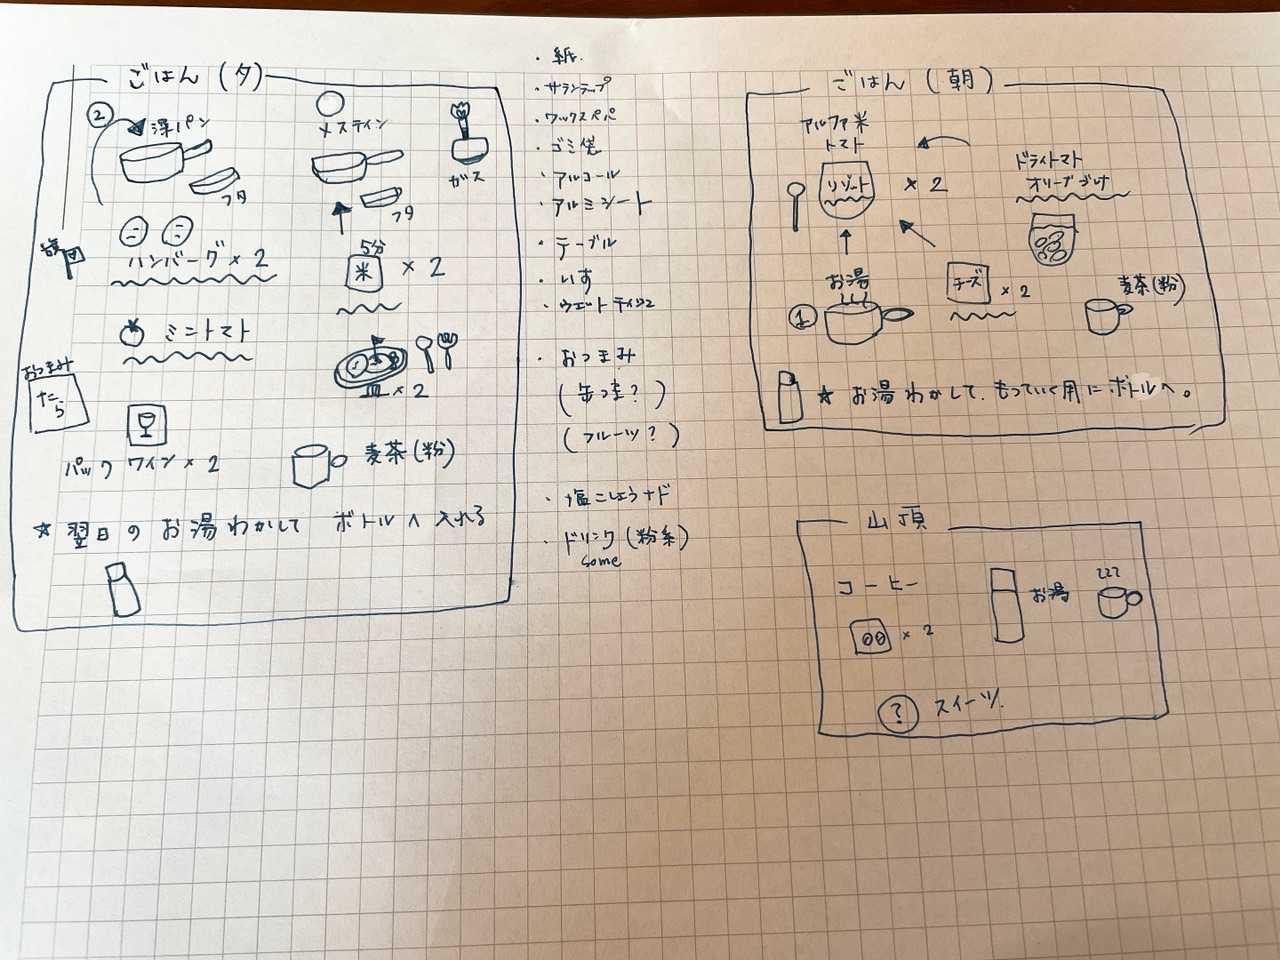 ごはん(夕)
② 深パン
フタ
メスティン
フタ
ガス
ハンバーグ×2
5分
米 ×2
ミニトマト
皿×2
おつまみ
たら
パックワイン×2
麦茶(粉)
☆翌日のお湯わかして ボトルへ入れる
・紙
・サランラップ
・ワックスペーパー
・ゴミ袋
・アルコール
・アルミシート
・テーブル
・いす
・ウェットティッシュ
・おつまみ
(缶づま?)
(フルーツ?)
・塩こしょうナド
・ドリンク(粉系)
some
ごはん(朝)
アルファ米
トマト
リゾット ×2
ドライトマト
オリーブづけ
お湯
①
チーズ ×2
麦茶(粉)
☆お湯わかして、もっていく用にボトルへ。
山頂
コーヒー
×2
お湯
? スイーツ